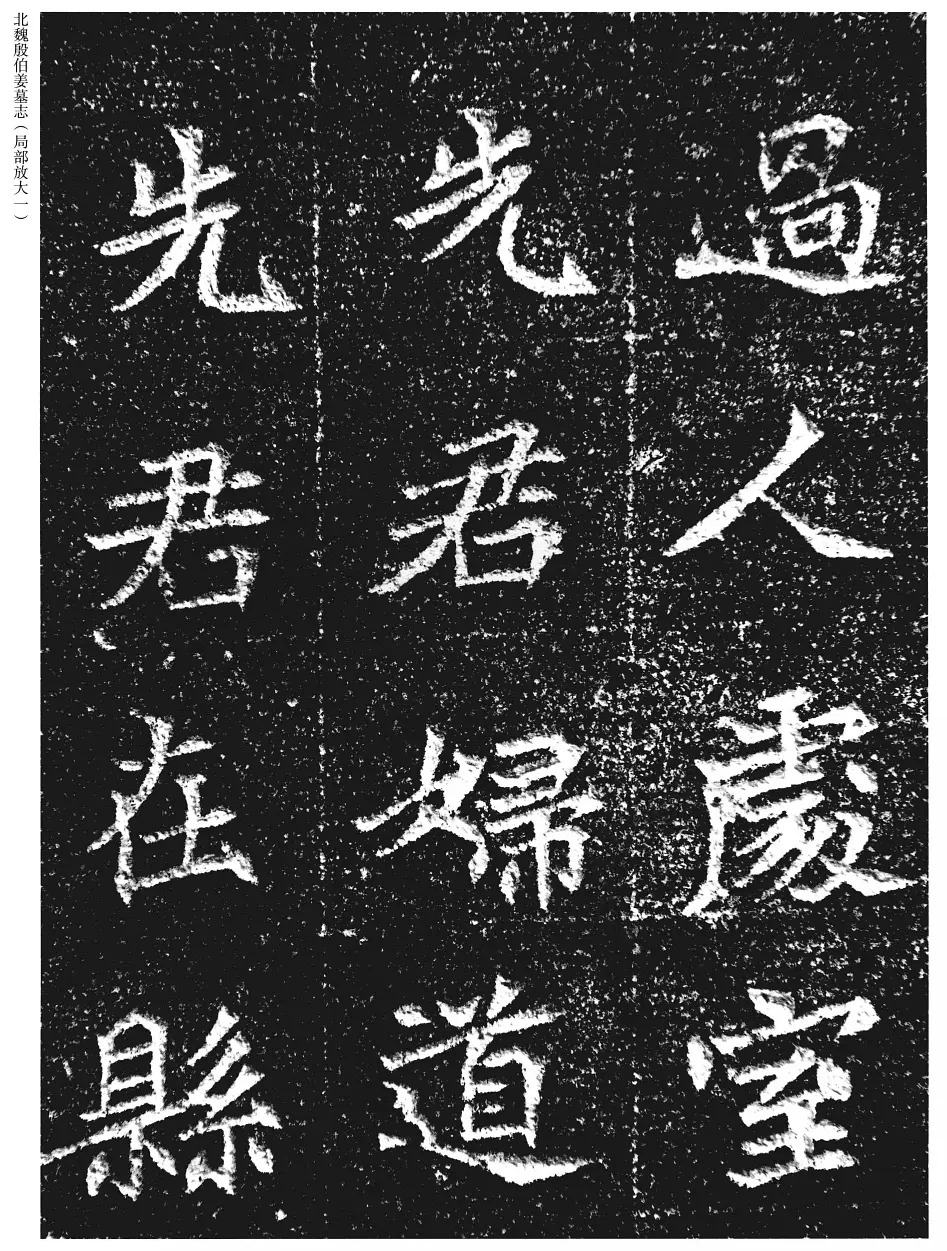 北魏殷伯姜墓志（局部放大一）
過人處室
先君婦道
先君在縣